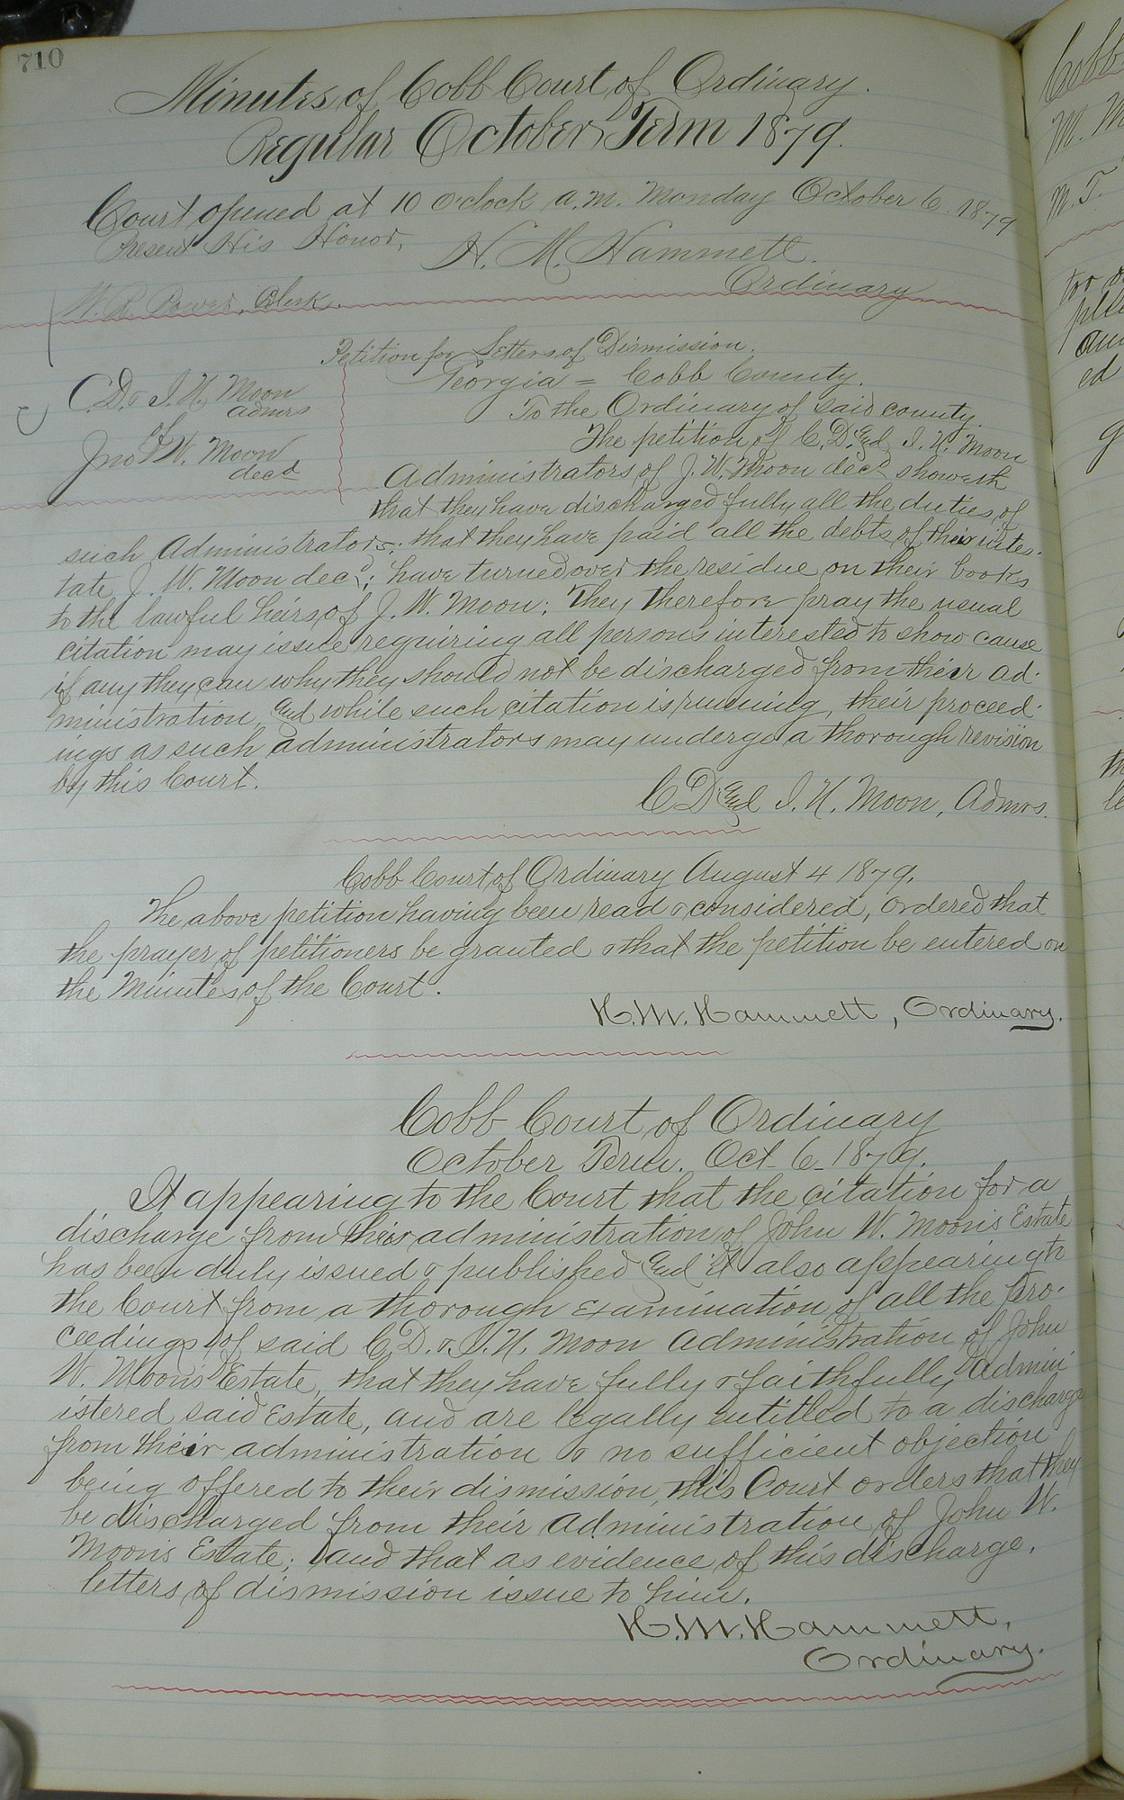 710
Minutes of Cobb Court of Ordinary.
Regular October Term 1879.
Court opened at 10 O'clock A.M. Monday October 6. 1879
Present His Honor, H. M. Hammett.
Ordinary
W. R. Power, Clerk.
Petition for Letters of Dismission.
C.D. & I. N. Moon
admrs
of
Jno W. Moon
decd
Georgia = Cobb County.
To the Ordinary of said county.
The petition of C. D. and I. N. Moon
Administrators of J. W. Moon decd. showeth
that they have discharged fully all the duties of
such Administrators; that they have paid all the debts of their intes-
tate J. W. Moon decd.; have turned over the residue on their books
to the lawful heirs of J. W. Moon; They therefore pray the usual
citation may issue requiring all persons interested to show cause
if any they can why they should not be discharged from their ad-
ministration, and while such citation is running, their proceed-
ings as such administrators may undergo a thorough revision
by this Court.
C D and I. N. Moon, Admrs.
Cobb Court of Ordinary August 4 1879.
The above petition having been read & considered, ordered that
the prayer of petitioners be granted & that the petition be entered on
the Minutes of the Court.
H. M. Hammett, Ordinary.
Cobb Court of Ordinary
October Term. Oct. 6. 1879.
It appearing to the Court that the citation for a
discharge from their administration of John W. Moon's Estate
has been duly issued & published and it also appearing to
the Court from a thorough examination of all the pro-
ceedings of said C D. & I. N. Moon administration of John
W. Moon's Estate, that they have fully & faithfully admin
istered said Estate, and are legally entitled to a discharge
from their administration & no sufficient objection
being offered to their dismission, this Court orders that they
be discharged from their administration of John W.
Moon's Estate; and that as evidence of this discharge,
letters of dismission issue to him.
H. M. Hammett,
Ordinary.